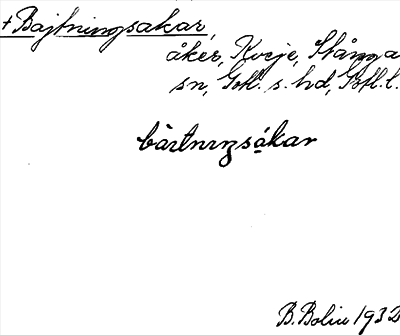 + Bajtningsakar,
åker, Kvie, Stånga
sn, Gotl. s. hd, Gotl. l.
bàıtnıŋsákar
B. Bolin 1932